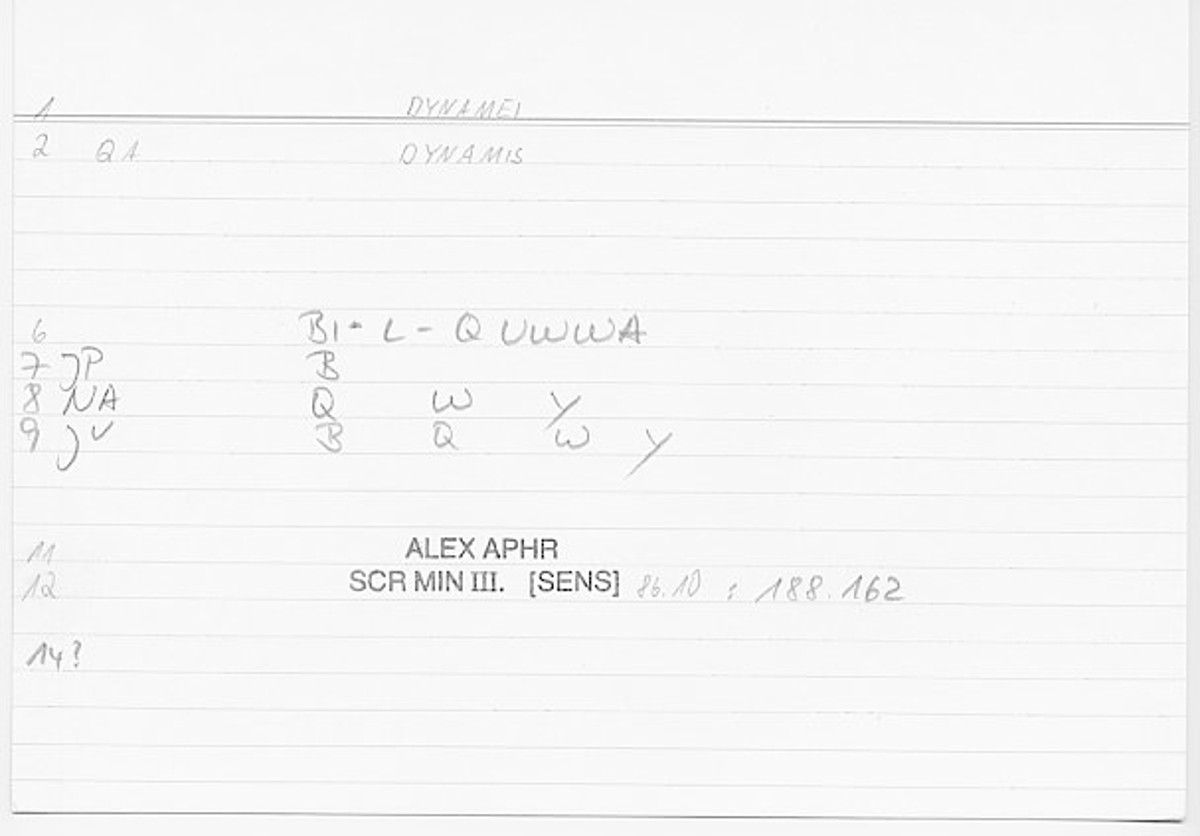 1 DYNAMEI
2 Q1 DYNAMIS
6 BI- L- QUWWA
7 )P B
8 NA Q W Y
9 )V B Q W Y
11 ALEX APHR
12 SCR MIN III. [SENS] 86.10 : 188.162
14?